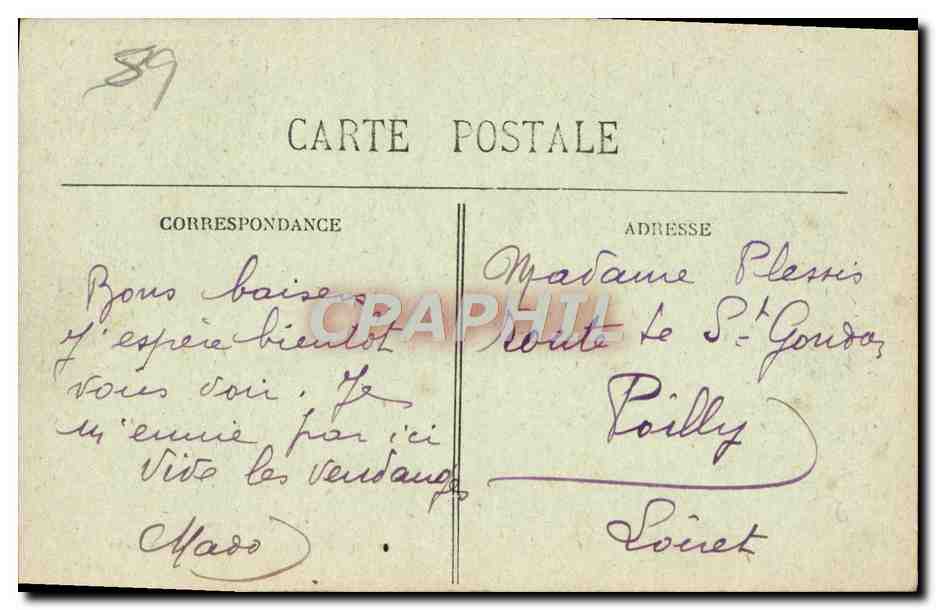 89
CARTE POSTALE
CORRESPONDANCE
Bons baisers
J'espère bientôt
vous voir. Je
m'ennuie par ici
Vive les vendanges
Mado
ADRESSE
Madame Plessis
route de St Gondon
Poilly
Loiret
CPAPHIL